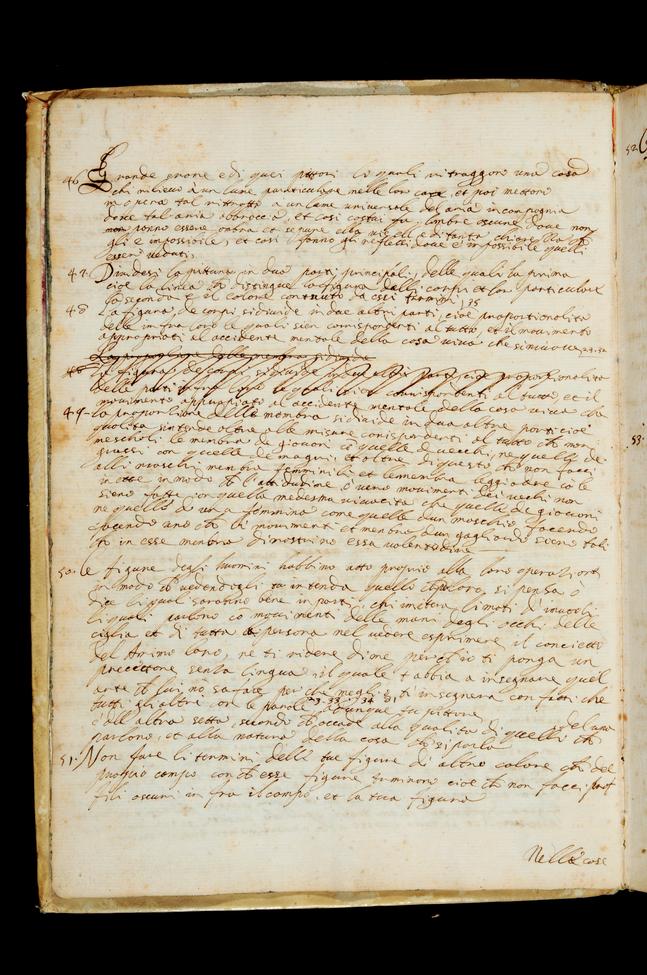 46. Grande errore è di quei pittori li quali ritraggono una cosa
di rilievo a un lume particulare nelle lor case, et poi mettono
in opera tal ritratto a un lume universale del aria in campagnia
dove tal aria abbraccia, et cosi costui fa ombre oscure dove non
gli è impossibile, et cosi fanno gli reflessi dove è impossibile quelli
esser veduti.
47. Dividesi la pittura in due parti principali, delle quali la prima
cioè la linea che distingue la figura delli corpi et lor particulare
la seconda è il colore contenuto da essi termini, 35
48 La figura de corpi si divide in due altri parti, cioè proportionalita
delle in fra loro le quali sien correspondenti al tutto, et il movimento
appropriati al accidente mentale della cosa viva che si muove
La proportione delle membra si divide
48 La figura de corpi si divide in due altri parti cioè proportionalita
delle parti infra loro le quali sien correspondenti al tutto, et il
movimento appropriato al accidente mentale della cosa viva che
49- La proportione delle membra si divide in dua altre parti cioè
qualità s'intende oltre alle misure corispondenti al tutto che non
mescholi le membra de giovani co quelle de vecchi, ne quelle de
grassi con quelle de magri, et oltre di questo che non facci
alli maschi membra femminili et le membra leggiadre co le
inette in modo ch l'attitudine o vero movimenti dei vechi non
sieno fatte con quella medesma vivacità che quelle de giovani
ne quelle d una femmina come quelle d'un maschio, facendo
facendo uno ch li movimenti et membra d'un gagliardo sieno tali
ch in esse membra dimostrino essa valetudine
50. Le figure degli huomini habbino atto proprio alla loro operationi
in modo ch vedendogli tu intenda quello ch p loro si pensa o
dice li quali saranno bene in parti, chi imitera li moti d'mutoli
li quali parlano co movimenti delle mani degli occhi, delle
ciglia et di tutta la persona nel volere esprimere il concietto
del Animo loro, nè ti ridere di me perch io ti ponga un
precettore senza lingua, il quale t'abbia a insegnare quel
arte ch lui no sa fare, perche meglio ti insegnera con fatti che
tutti gli altri con le parole, adunque tu pittore
o dell altra setta, secondo ch accade alla qualità di quelli che
parlano, et alla natura della cosa che si parla del una
51. Non fare li termini delle tue figure d'altro colore ch del
proprio campo con ch esse figure terminono cioè ch non facci prof
fili oscuri in fra il campo, et la tua figura
Nelle cose
52.
53.